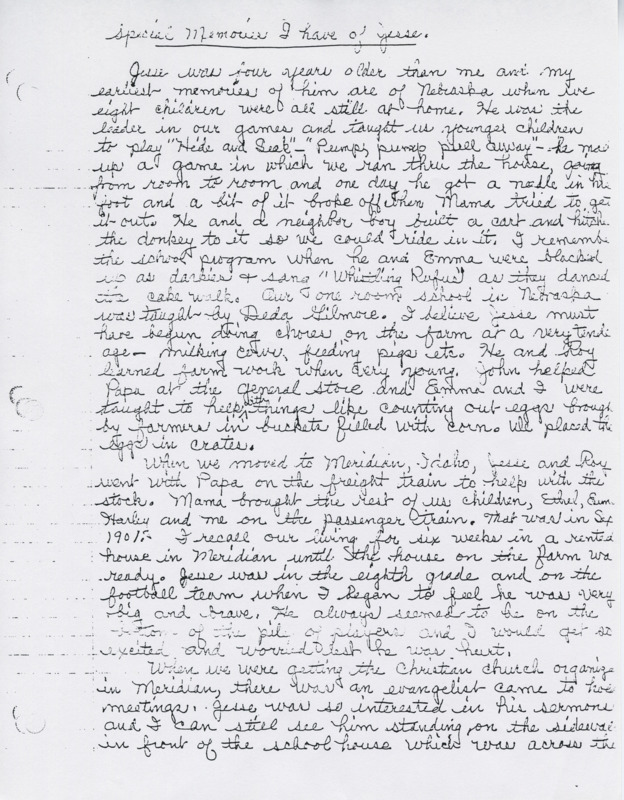 Special Memories I have of Jesse.
Jesse was four years older than me and my
earliest memories of him are of Nebraska when we
eight children were all still at home. He was the
leader in our games and taught us younger children
to play "Hide and Seek" - "Pump, pump pull away" - he ma
up a game in which we ran thru the house, going
from room to room and one day he got a needle in his
foot and a bit of it broke off when Mama tried to get
it out. He and a neighbor boy built a cart and hitch
the donkey to it so we could ride in it. I remembe
the school program when he and Emma were blacked
up as darkies & sang "Whistling Rufus" as they danced
the cake walk. Our one room school in Nebraska
was taught by Deda Gilmore. I believe Jesse must
have begun doing chores on the farm at a very tende
age - milking cows, feeding pigs etc. He and Roy
learned farm work when very young. John helped
Papa at the general store and Emma and I were
taught to help with things like counting out eggs brough
by farmers in buckets filled with corn. We placed the
eggs in crates.
When we moved to Meridian, Idaho, Jesse and Roy
went with Papa on the freight train to help with the
stock. Mama brought the rest of us children, Ethel, Em
Harley and me on the passenger train. That was in
1901. I recall our living for six weeks in a rented
house in Meridian until the house on the farm wa
ready. Jesse was in the eighth grade and on the
football team when I began to feel he was very
big and brave. He always seemed to be on the
bottom of the pile of players and I would get so
excited and worried lest he was hurt.
When we were getting the Christian church organize
in Meridian, there was an evangelist came to
meetings. Jesse was so interested in his sermons
and I can still see him standing on the sidewal
in front of the schoolhouse which was across the